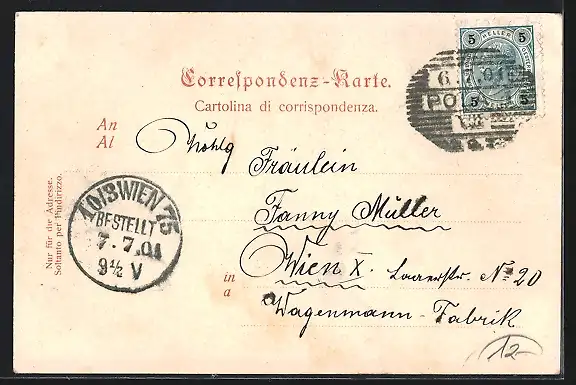 5 HELLER 5
5 5
6.7.01
PO
Correspondenz-Karte.
Cartolina di corrispondenza.
An
Al
Wohlg
Fräulein
Fanny Müller
10/3 WIEN 75
BESTELLT
7.7.01
9½ V
Nur für die Adresse.
Soltanto per l'indirizzo.
in
a
Wien X. Laaerstr. No 20
Wagenmann-Fabrik
12-